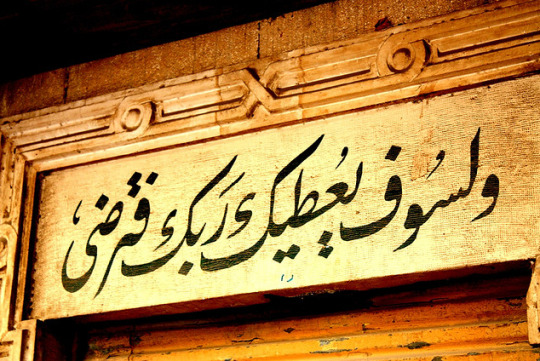 ولسُوف يُعطيك رَبك فترضىٰ